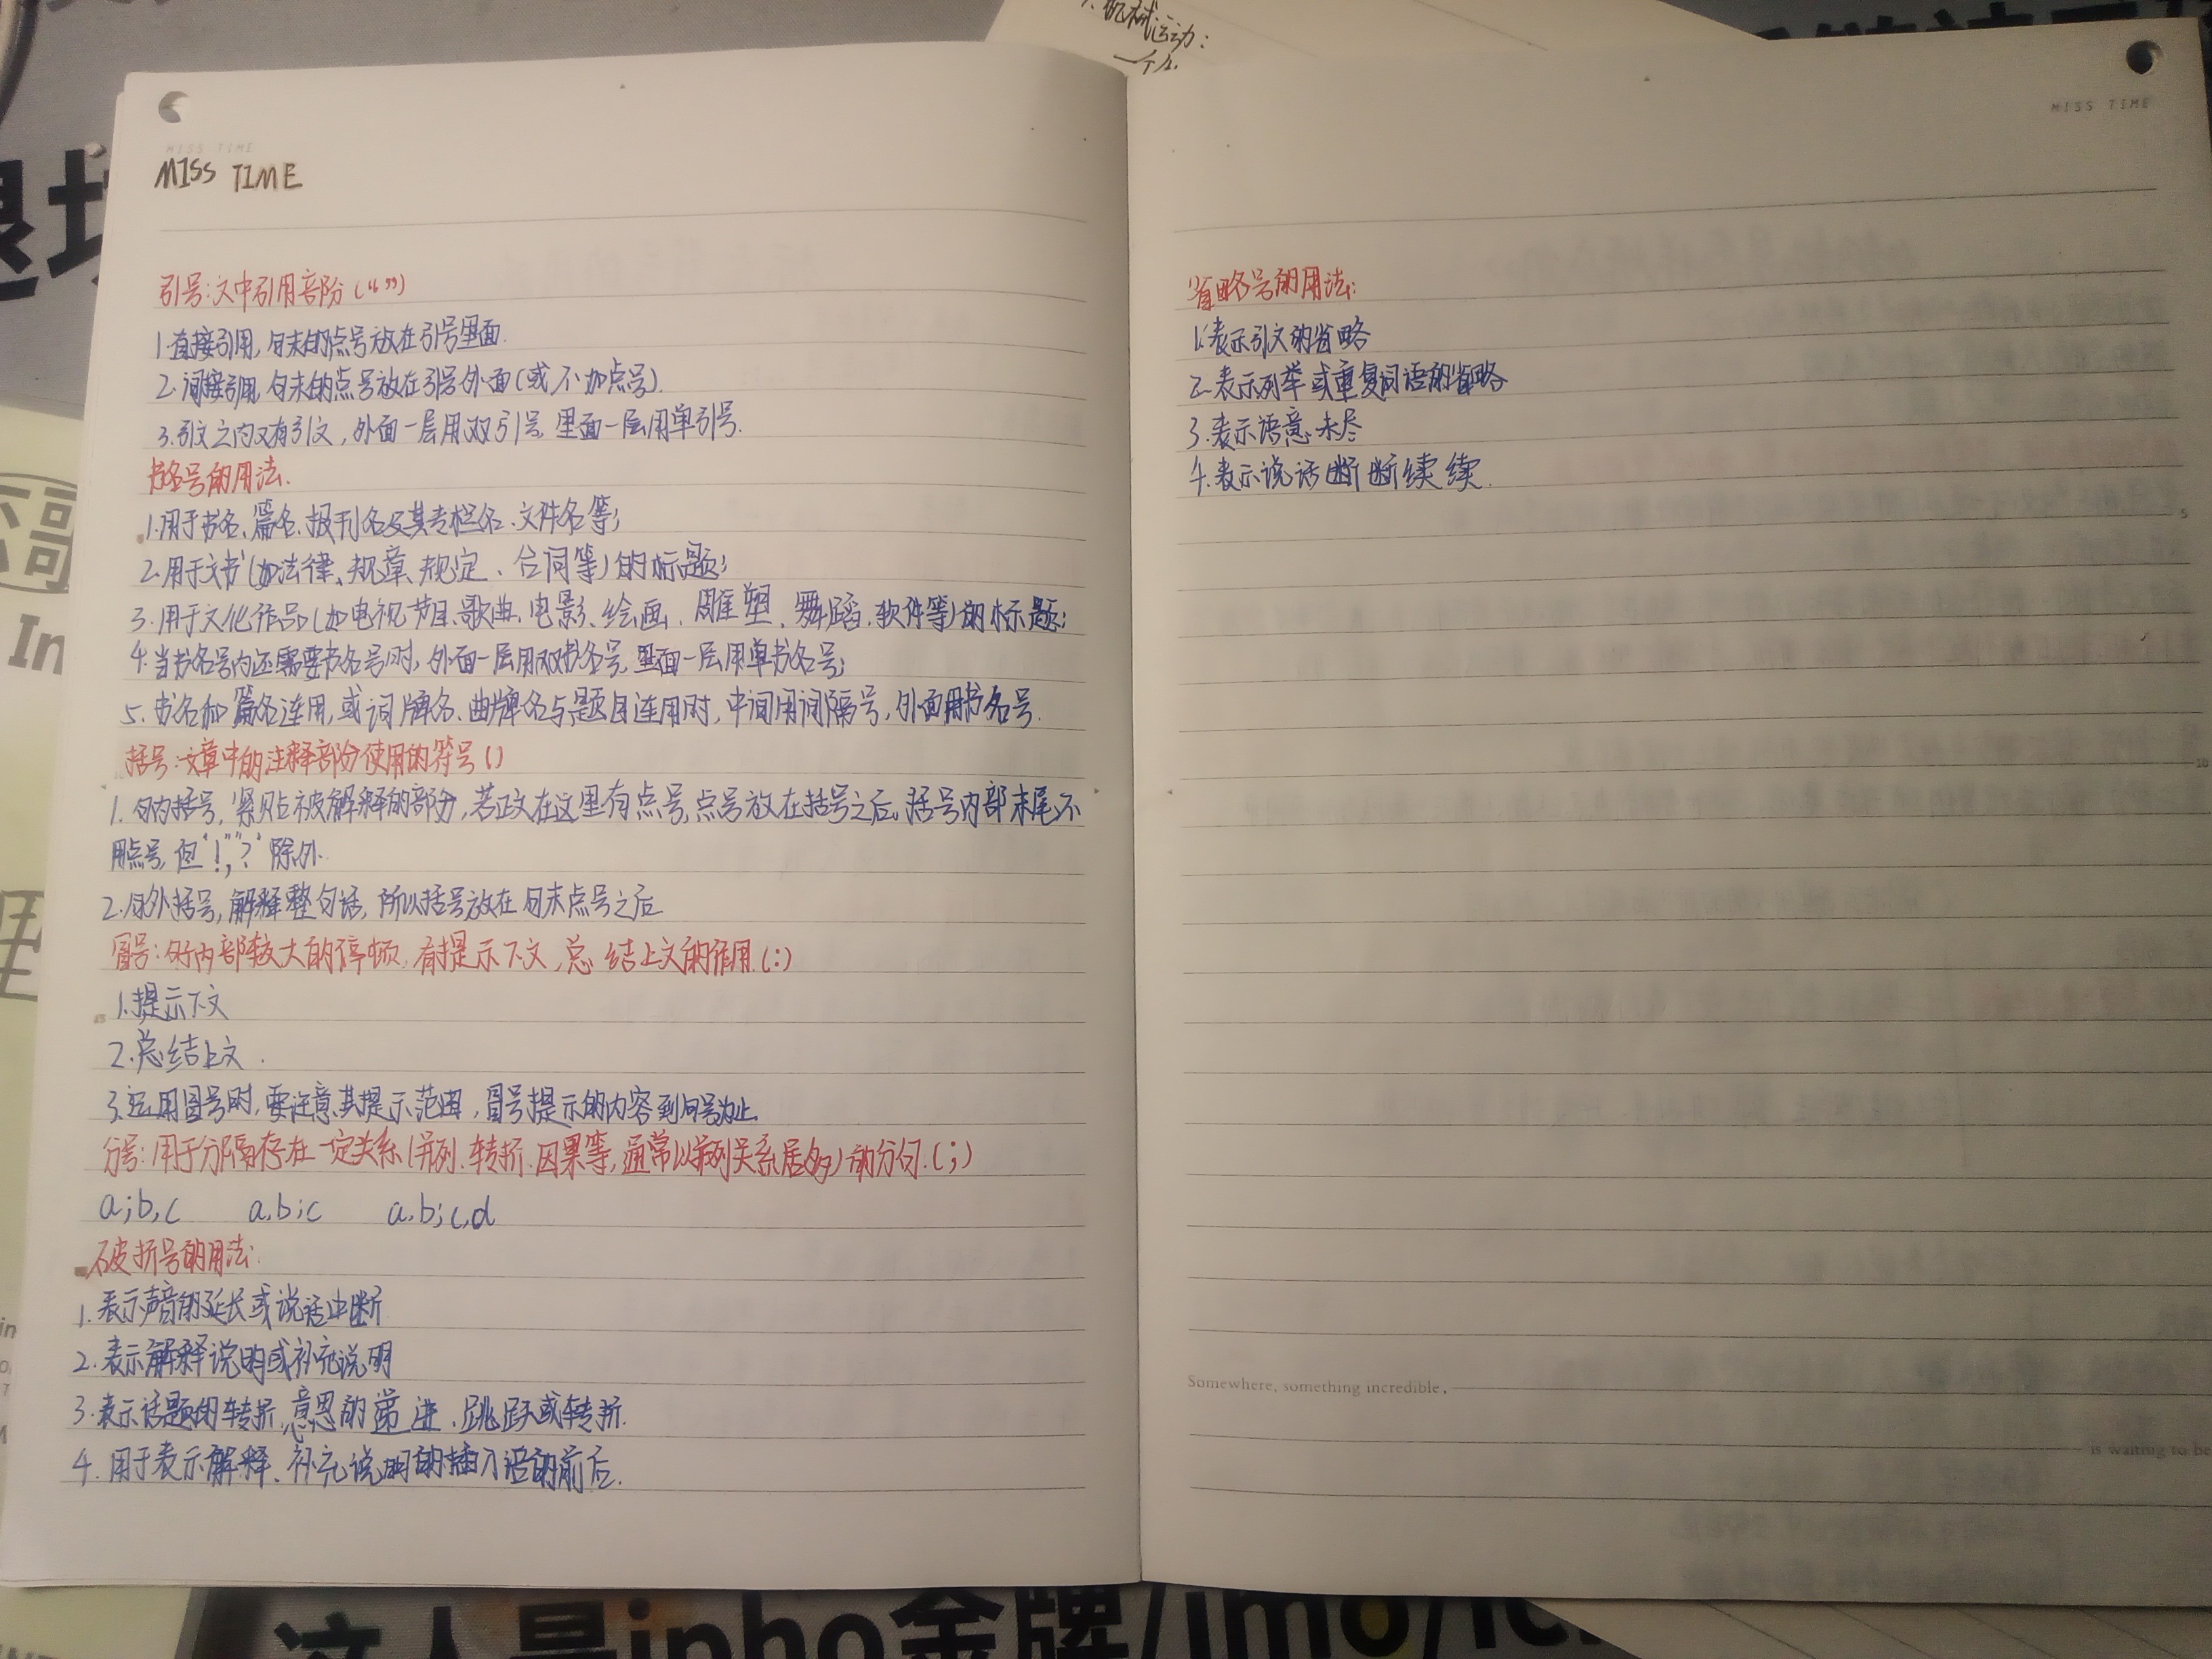 1.机械运动：
一个
MISS TIME
MISS TIME
引号：文中引用部份（“ ”）
1.直接引用，句末的点号放在引号里面.
2.间接引用，句末的点号放在引号外面（或不加点号）.
3.引文之内又有引文，外面一层用双引号，里面一层用单引号.
书名号的用法.
1.用于书名、篇名、报刊名及其专栏名、文件名等；
2.用于文书（如法律、规章、规定、合同等）的标题；
3.用于文化作品（如电视节目、歌曲、电影、绘画、雕塑、舞蹈、软件等）的标题；
4.当书名号内还需要书名号时，外面一层用双书名号，里面一层用单书名号；
5.书名和篇名连用，或词牌名、曲牌名与题目连用时，中间用间隔号，外面用书名号.
括号：文章中的注释部分使用的符号（）
1.句内括号，紧贴被解释的部分，若正文在这里有点号，点号放在括号之后。括号内部末尾不
用点号，但“！”，“？”除外.
2.句外括号，解释整句话，所以括号放在句末点号之后
冒号：句内部较大的停顿，有提示下文，总结上文的作用.（：）
1.提示下文
2.总结上文.
3.运用冒号时，要注意其提示范围，冒号提示的内容到句号为止.
分号：用于分隔存在一定关系（并列、转折、因果等，通常以并列关系居多）的分句.（；）
a;b,c a,b;c a,b;c,d
破折号的用法：
1.表示声音的延长或说话中断
2.表示解释说明或补充说明
3.表示话题的转折，意思的递进、跳跃或转折.
4.用于表示解释、补充说明的插入语的前后.
MISS TIME
省略号的用法：
1.表示引文的省略
2.表示列举或重复词语的省略
3.表示语意未尽
4.表示说话断断续续.
5
10
Somewhere, something incredible,
is waiting to be
这人是ipho金牌/imo/ic